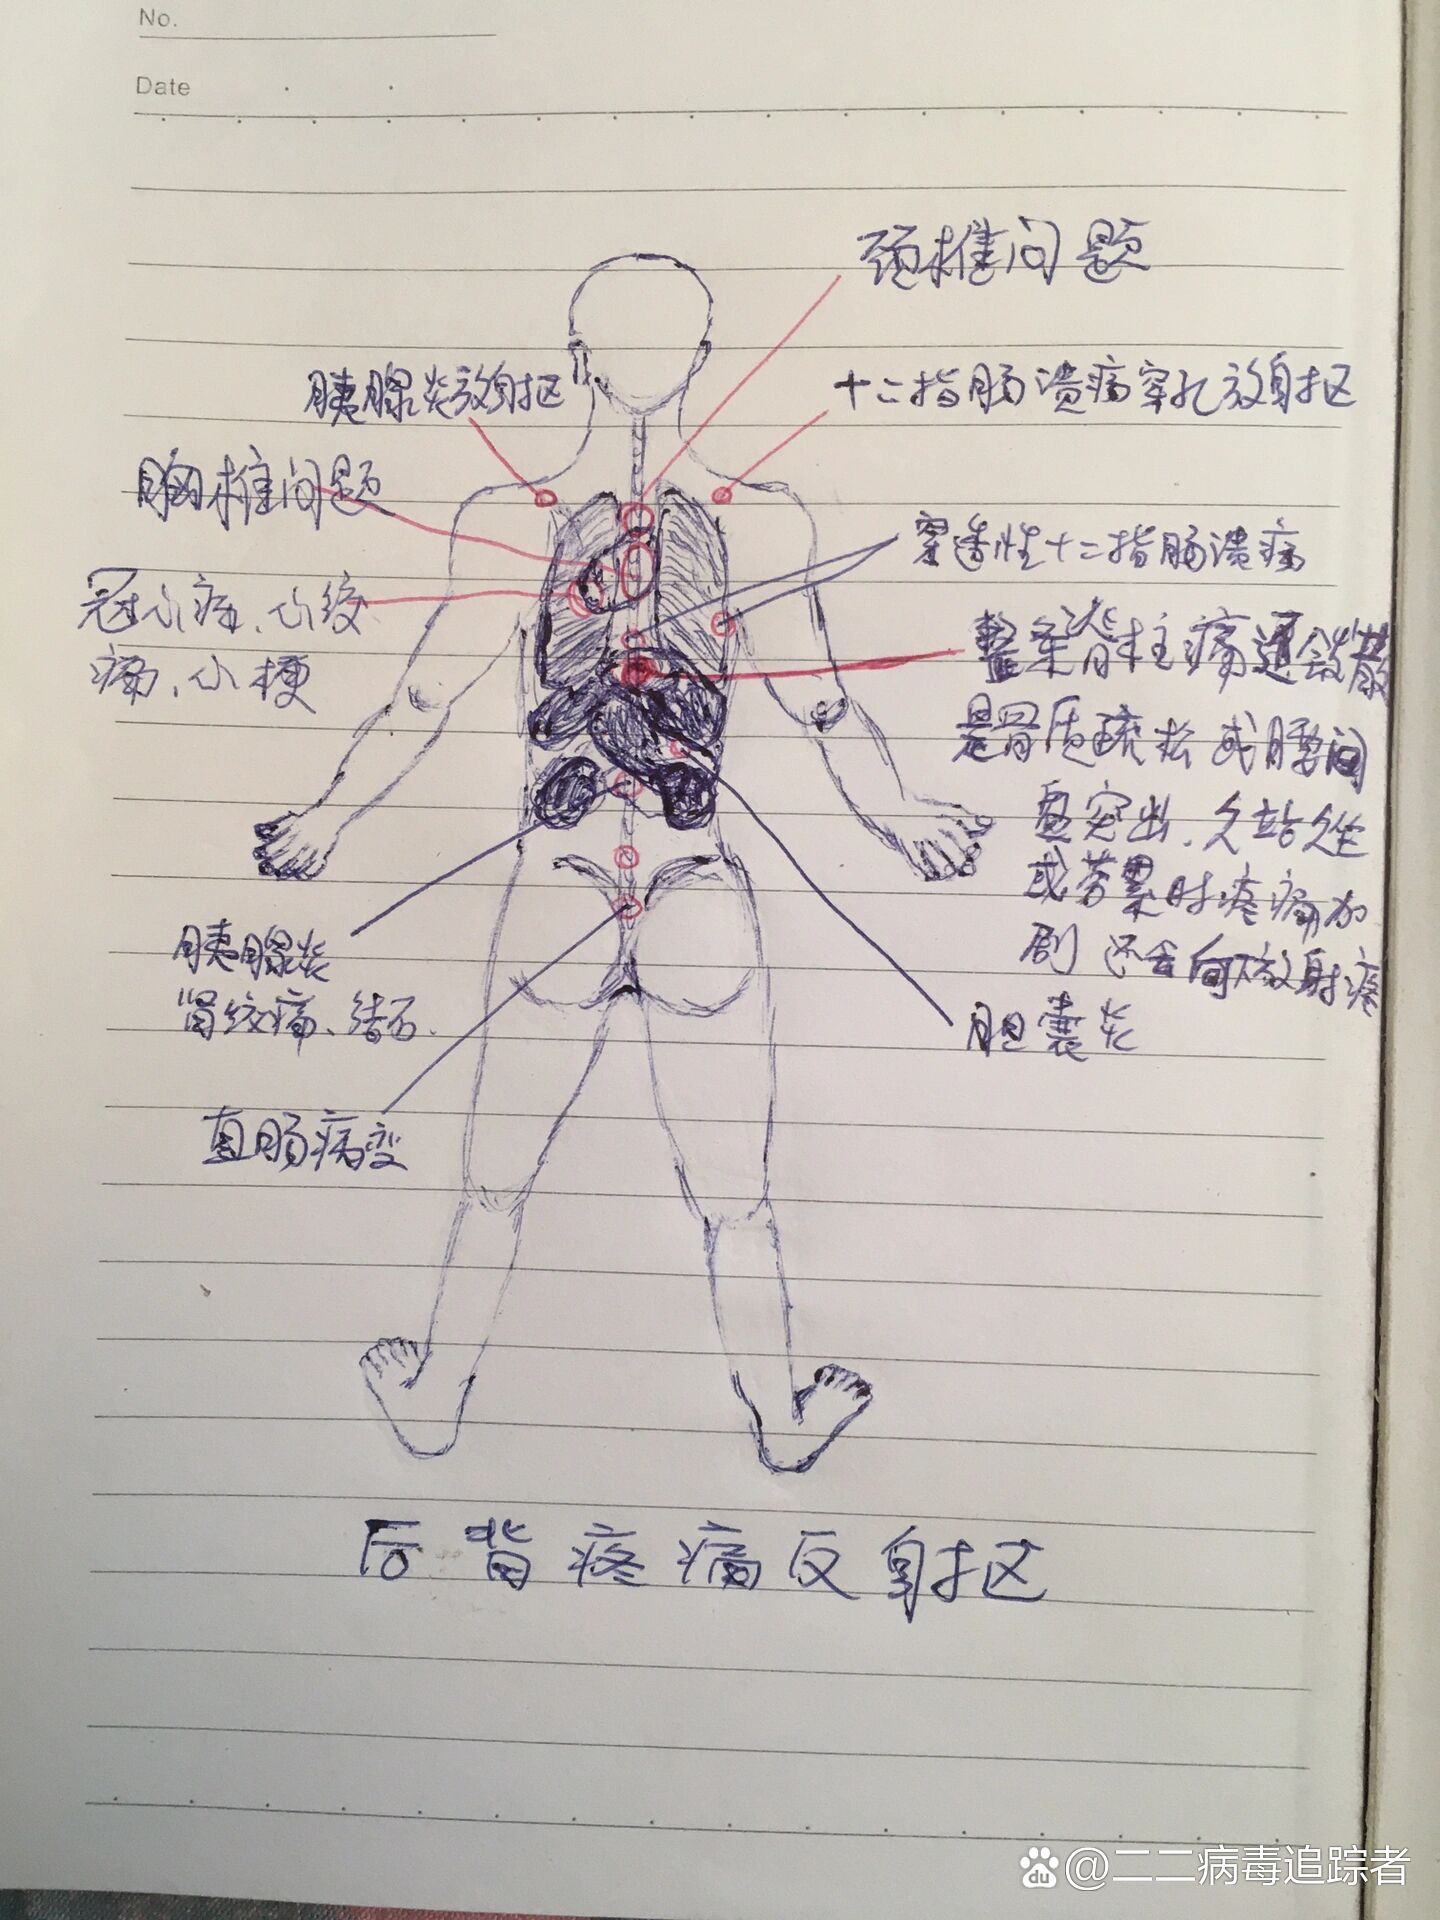 No.
Date
颈椎问题
胰腺炎放射抠
十二指肠溃疡穿孔放射抠
胸椎问题
穿透性十二指肠溃疡
冠心病、心绞
痛、心梗
整条脊柱痛
是骨质疏松或腰间
盘突出、久站久坐
或劳累时疼痛加
剧 还会向下放射疼
胰腺炎
肾绞痛、结石.
胆囊炎
直肠病变
后背疼痛反射抠
du @二二病毒追踪者